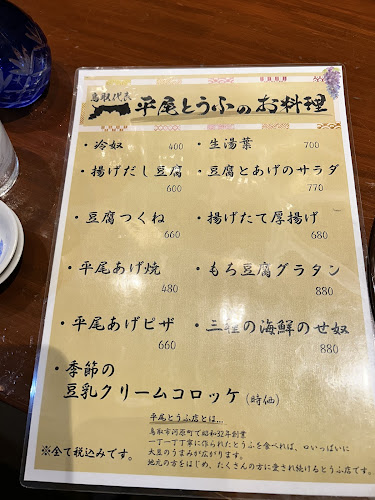 鳥取代表
平尾とうふのお料理
・冷奴 400
・生湯葉 700
・揚げだし豆腐 600
・豆腐とあげのサラダ 770
・豆腐つくね 660
・揚げたて厚揚げ 680
・平尾あげ焼 480
・もち豆腐グラタン 880
・平尾あげピザ 660
・三種の海鮮のせ奴 880
・季節の
豆乳クリームコロッケ(時価)
平尾とうふ店とは…
鳥取市河原町で昭和32年創業
一丁一丁丁寧に作られたとうふを食べれば、口いっぱいに
大豆のうまみが広がります。
地元の方をはじめ、たくさんの方に愛され続けるとうふ店です。
※全て税込みです。